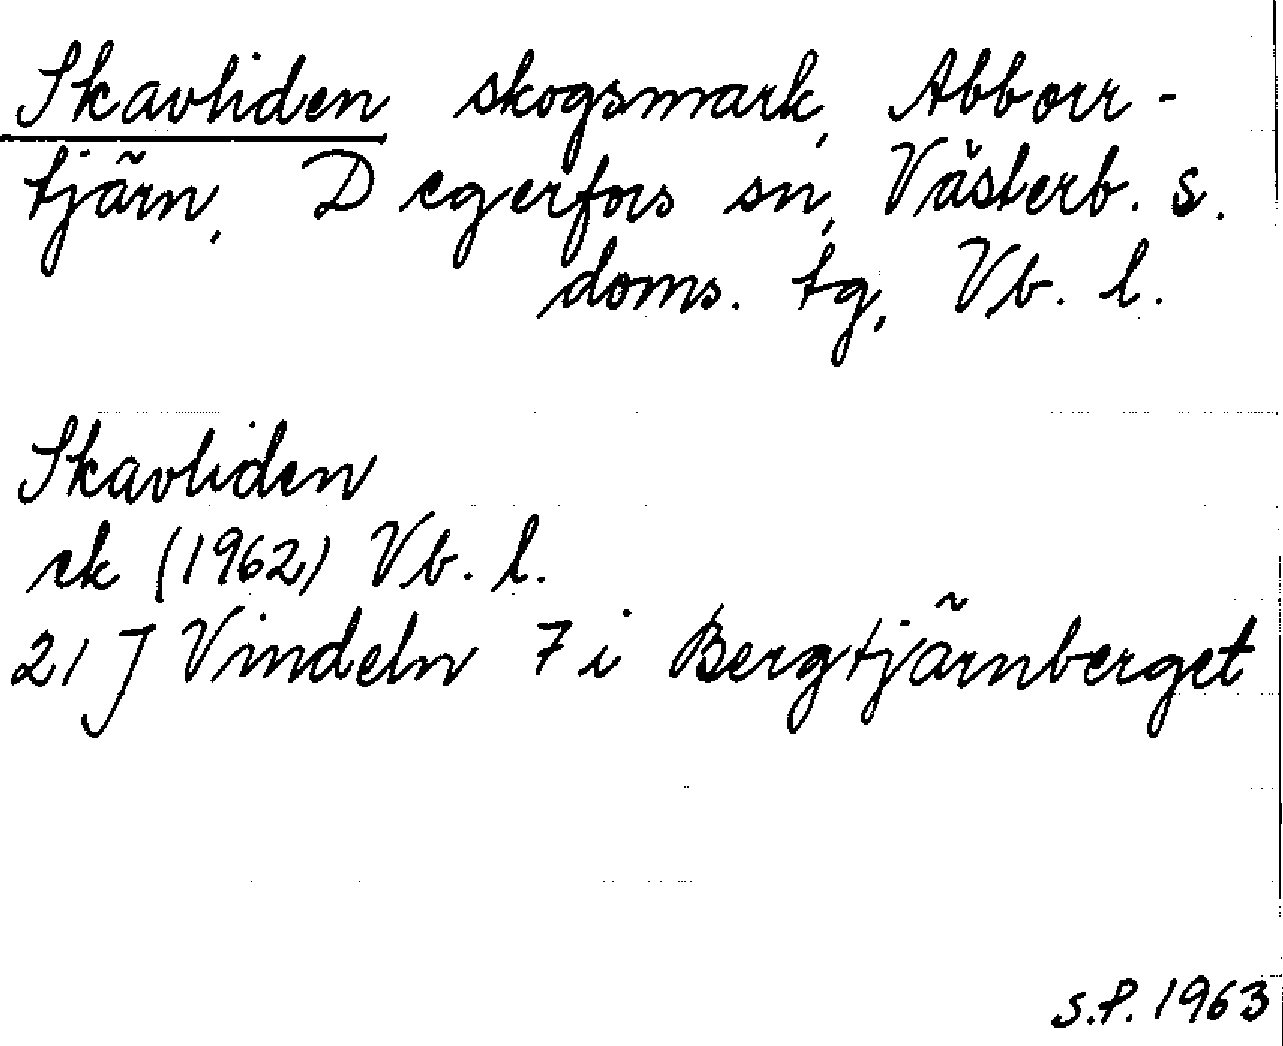 Skavliden skogsmark, Abborr-
tjärn, Degerfors sn, Västerb. s.
doms. tg, Vb. l.
Skavliden
ek (1962) Vb. l.
21 J Vindeln 7 i Bergtjärnberget
S.P. 1963